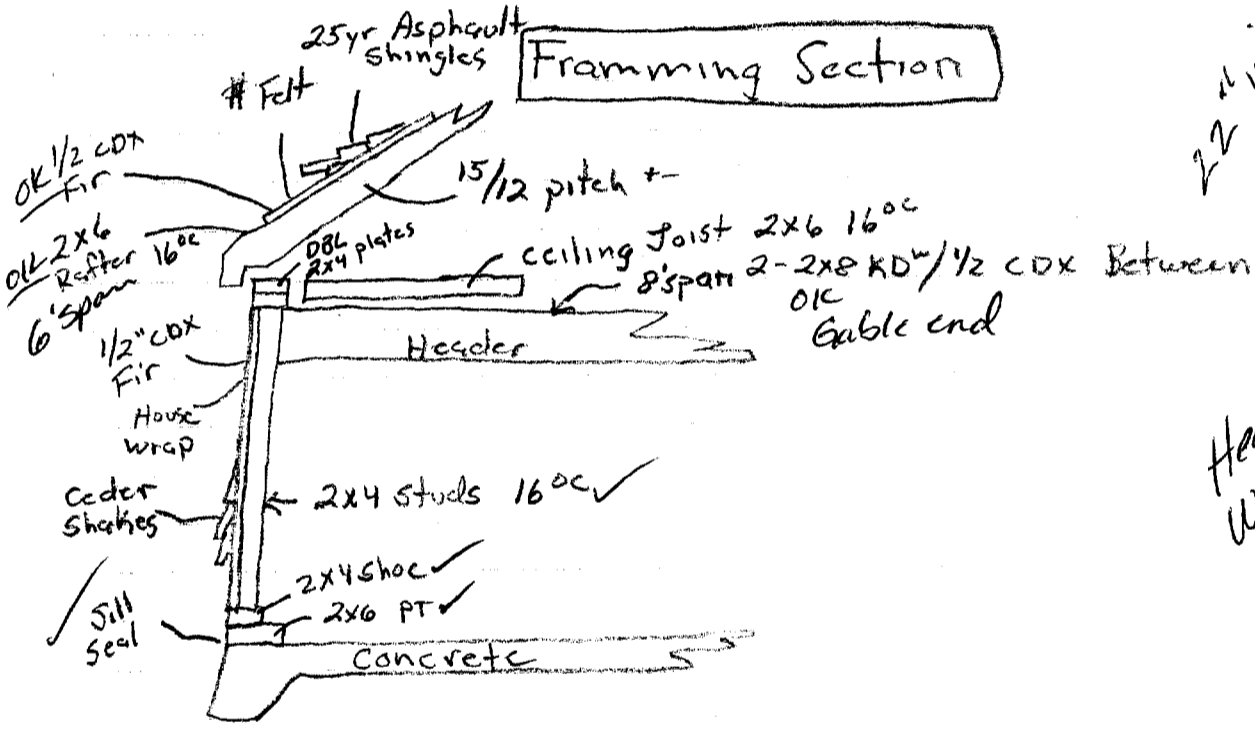 25yr Asphault
Shingles
Framming Section
# Felt
OK 1/2 CDX
Fir
15/12 pitch +-
OK 2x6
Rafter 16"oc
6' span
DBL
2x4 plates
Ceiling Joist 2x6 16"oc
8' span 2-2x8 KD w/ 1/2 CDX Between
OK
Gable end
1/2" CDX
Fir
Header
House
wrap
Ceder
Shakes
2x4 Studs 16"oc ✓
2x4 Shoe ✓
2x6 PT ✓
✓ Sill
Seal
Concrete
22"